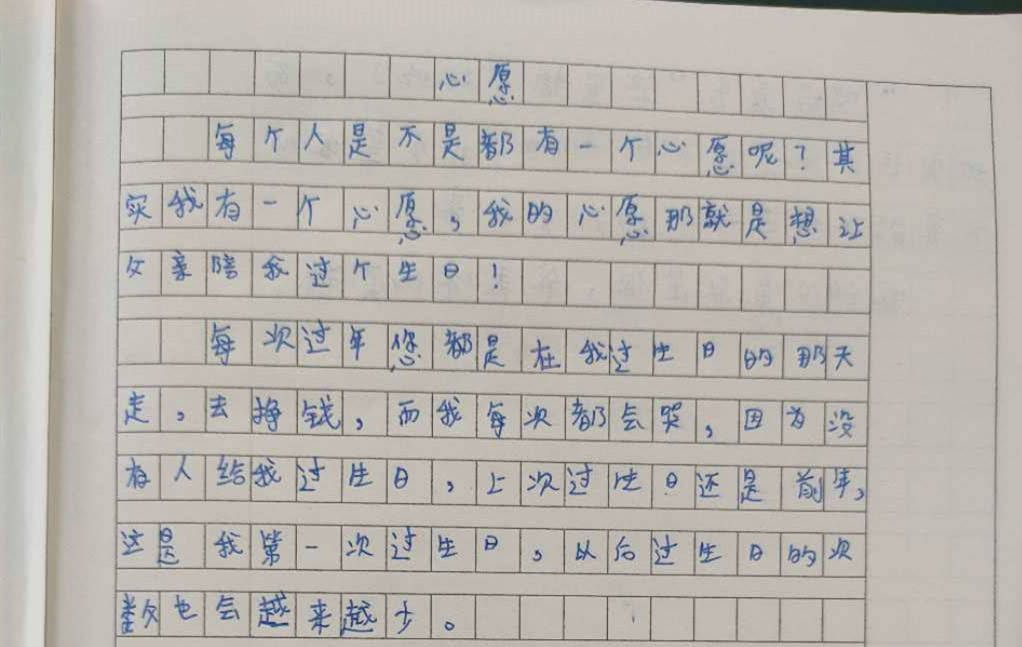 心愿
每个人是不是都有一个心愿呢？其
实我有一个心愿，我的心愿那就是想让
父亲陪我过个生日！
每次过年您都是在我过生日的那天
走，去挣钱，而我每次都会哭，因为没
有人给我过生日，上次过生日还是前年，
这是我第一次过生日，以后过生日的次
数也会越来越少。